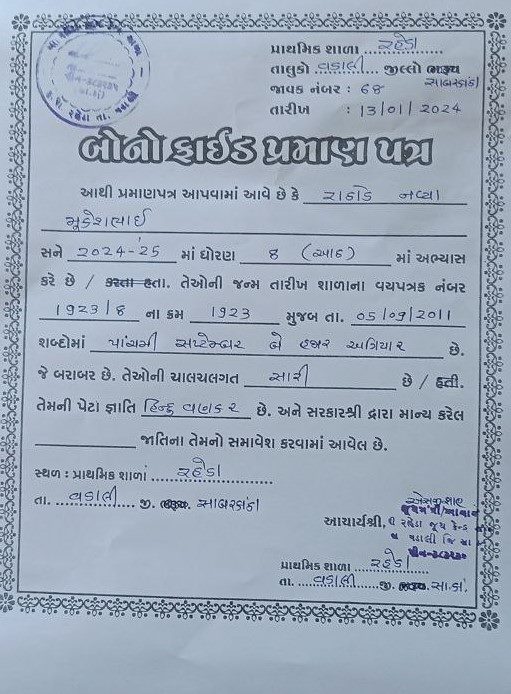 પ્રાથમિક શાળા રહેડા
તાલુકો વડાલી જીલ્લો ભરૂચ સાબરકાંઠા
જાવક નંબર : ૬૪
તારીખ : 13/01/2024
બોનોફાઈડ પ્રમાણ પત્ર
આથી પ્રમાણપત્ર આપવામાં આવે છે કે રાઠોડ નવ્યા
મુકેશભાઈ
સને 2024-25 માં ધોરણ 8 (આઠ) માં અભ્યાસ
કરે છે / કરતા હતા. તેઓની જન્મ તારીખ શાળાના વયપત્રક નંબર
1923/8 ના ક્રમ 1923 મુજબ તા. 05/09/2011
શબ્દોમાં પાંચમી સપ્ટેમ્બર બે હજાર અગિયાર છે.
જે બરાબર છે. તેઓની ચાલચલગત સારી છે / હતી.
તેમની પેટા જ્ઞાતિ હિન્દુ વણકર છે. અને સરકારશ્રી દ્વારા માન્ય કરેલ
જાતિના તેમનો સમાવેશ કરવામાં આવેલ છે.
સ્થળ : પ્રાથમિક શાળાં રહેડા
તા. વડાલી જી. ભરૂચ. સાબરકાંઠા
આચાર્યશ્રી,
પ્રાથમિક શાળા રહેડા
તા. વડાલી જી. ભરૂચ સા.કાં.